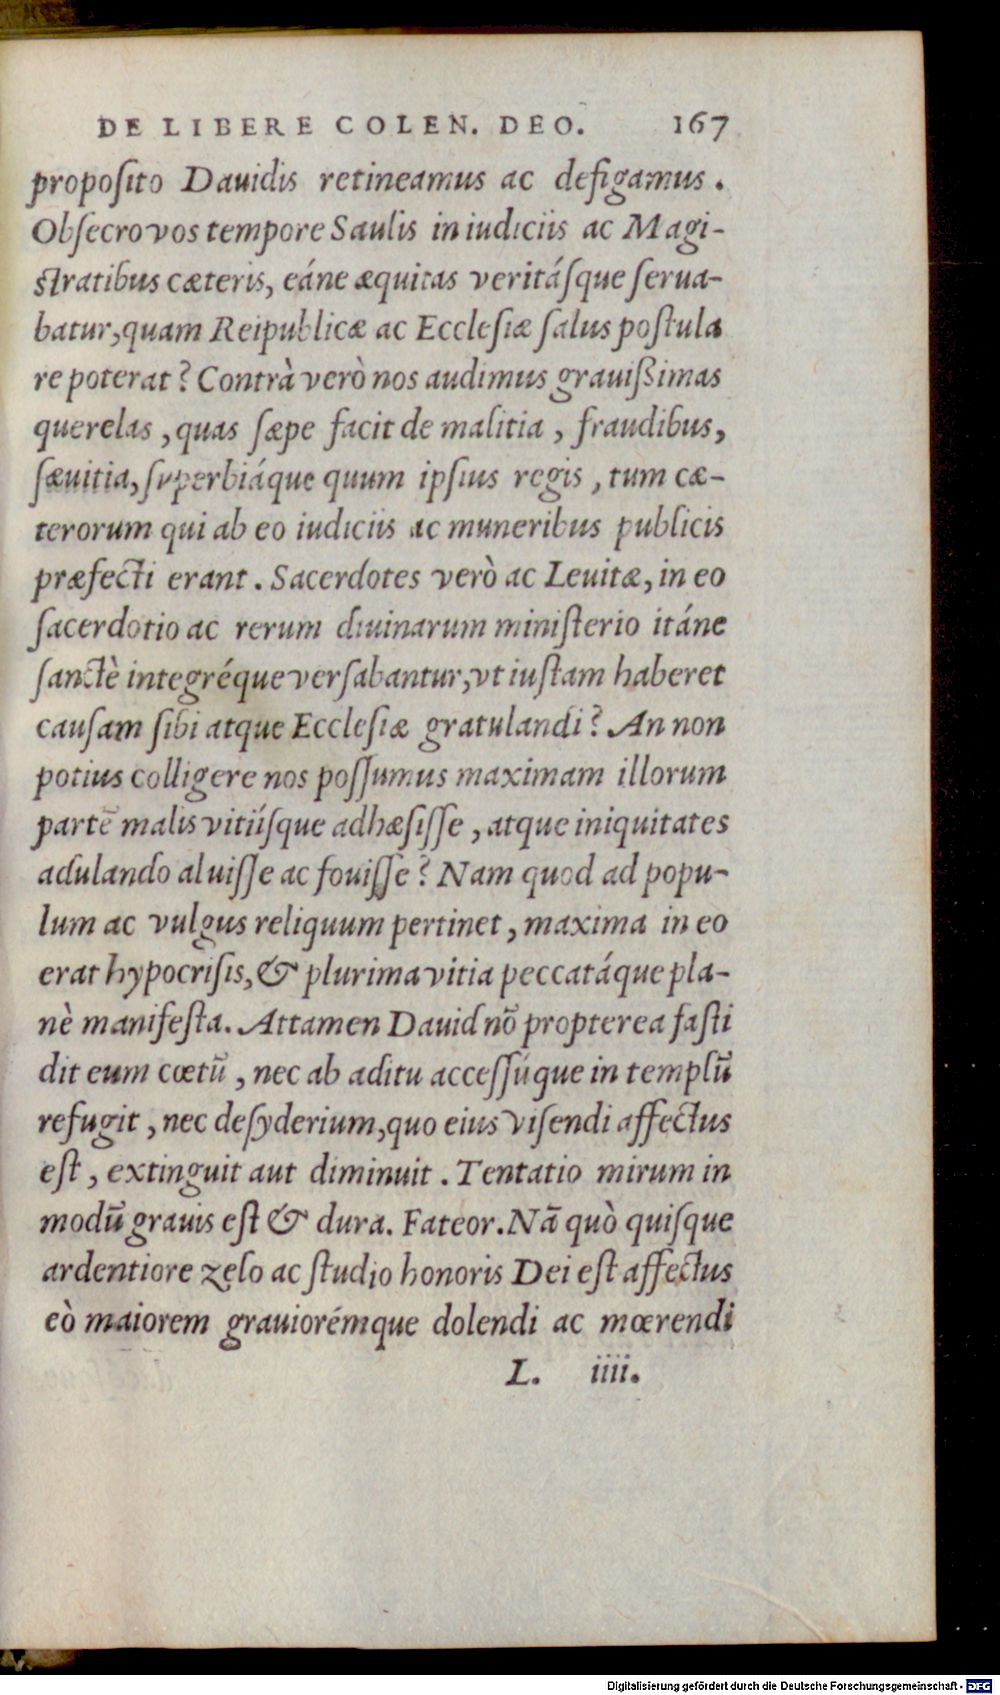 DE LIBERE COLEN. DEO. 167
propoſito Dauidis retineamus ac defigamus.
Obſecro vos tempore Saulis in iudiciis ac Magi-
ſtratibus cæteris, eáne æquitas veritáſque ſerua-
batur, quam Reipublicæ ac Eccleſiæ ſalus poſtula
re poterat? Contrà verò nos audimus grauißimas
querelas, quas ſæpe facit de malitia, fraudibus,
ſæuitia, ſuperbiáque quum ipſius regis, tum cæ-
terorum qui ab eo iudiciis ac muneribus publicis
præfecti erant. Sacerdotes verò ac Leuitæ, in eo
ſacerdotio ac rerum diuinarum miniſterio itáne
ſanctè integréque verſabantur, vt iuſtam haberet
cauſam ſibi atque Eccleſiæ gratulandi? An non
potius colligere nos poſſumus maximam illorum
partē malis vitiíſque adhæſiſſe, atque iniquitates
adulando aluiſſe ac fouiſſe? Nam quod ad popu-
lum ac vulgus reliquum pertinet, maxima in eo
erat hypocriſis, & plurima vitia peccatáque pla-
nè manifeſta. Attamen Dauid nō propterea faſti
dit eum cœtū, nec ab aditu acceſſúque in templū
refugit, nec deſyderium, quo eius viſendi affectus
eſt, extinguit aut diminuit. Tentatio mirum in
modū grauis eſt & dura. Fateor. Nā quò quiſque
ardentiore zelo ac ſtudio honoris Dei eſt affectus
eò maiorem grauiorémque dolendi ac mœrendi
L. iiii.
Digitalisierung gefördert durch die Deutsche Forschungsgemeinschaft - DFG